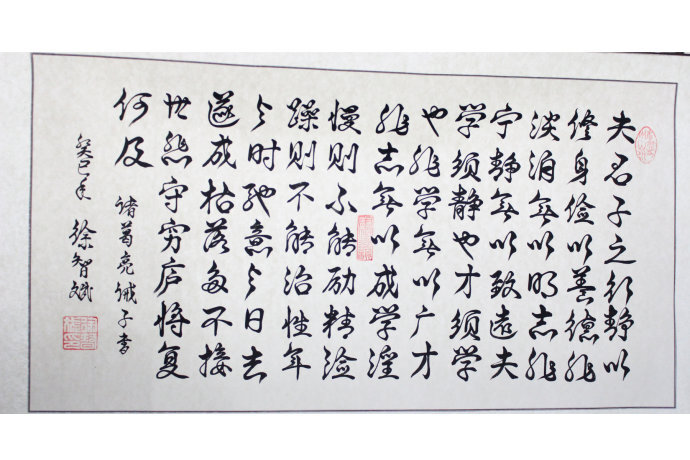 夫君子之行静以
修身俭以养德非
淡泊无以明志非
宁静无以致远夫
学须静也才须学
也非学无以广才
非志无以成学淫
慢则不能励精险
躁则不能治性年
与时驰意与日去
遂成枯落多不接
世悲守穷庐将复
何及
诸葛亮诫子书
癸巳年 徐智斌